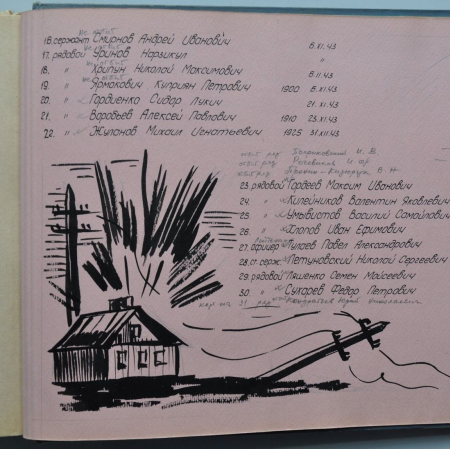 16. сержант Смирнов Андрей Иванович 6.XI.43
17. рядовой Уринов Нарзикул "
18. " Хрипун Николай Максимович 6.11.43
19. " Ярмакович Куприян Петрович 1900 5.XI.43
20. " Гордиенко Сидор Лукич 21.XI.43
21. " Воробьев Алексей Павлович 1910 23.XI.43
22. " Жупанов Михаил Игнатьевич 1925 31.XII.43
23. рядовой Гордеев Максим Иванович
24. " Килейников Валентин Яковлевич
25. " Умывистов Василий Самойлович
26. " Хлопов Иван Ефимович
27. офицер Чулаев Павел Александрович
28. ст. серж. Петуновский Николай Сергеевич
29. рядовой Ляшенко Семен Моисеевич
30. " Сухарев Федор Петрович
31 ряд